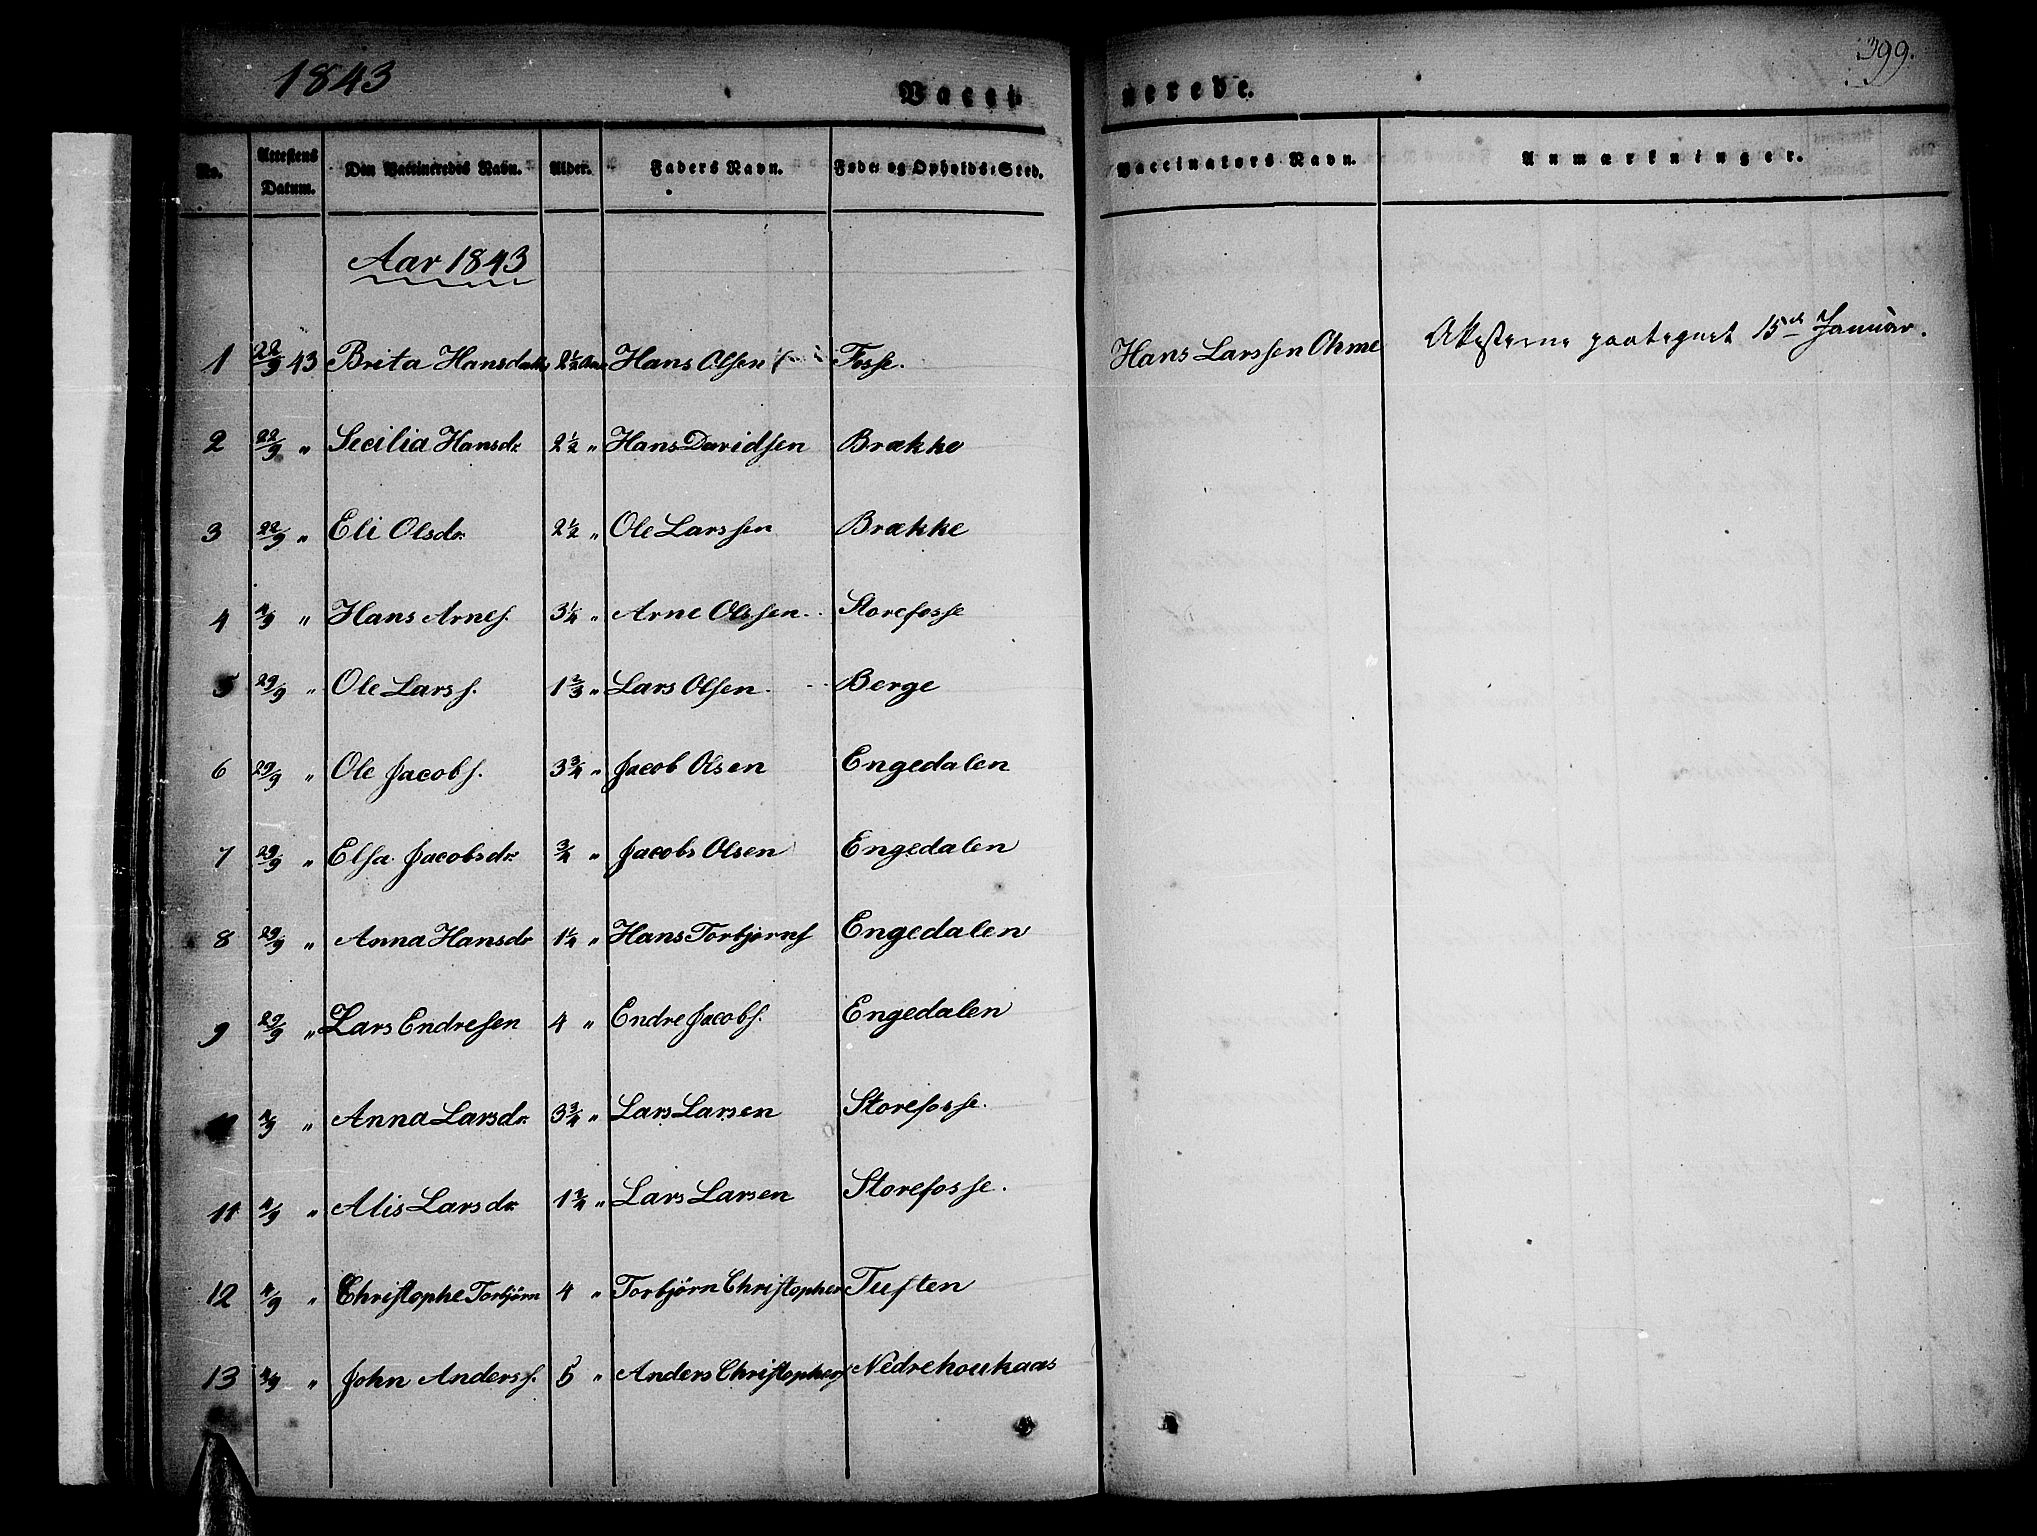 1843
399.
Vacci nerede.
No. Attestens Datum. Den Vaccineredes Navn. Alder. Faders Navn. Føde- og Opholds-Sted. Vaccinators Navn. Anmærkninger.
Aar 1843
1 22/9 43 Brita Hansdatter 2½ Aar Hans Olsen Fosse. Hans Larssen Ohme Attesterne paategnet 15de Januar.
2 22/9 " Secilia Hansdr. 2½ " Hans Davidsen Brække
3 22/9 " Eli Olsdr. 2½ " Ole Larssen Brække
4 4/9 " Hans Arnes. 3¼ " Arne Olssen Storefosse
5 29/9 " Ole Larss. 1⅔ " Lars Olsen Berge
6 29/9 " Ole Jacobs. 3¾ " Jacob Olsen Engedalen
7 29/9 " Elsa Jacobsdr. ¾ " Jacobs Olsen Engedalen
8 29/9 " Anna Hansdr 1¼ " Hans Torbjørns Engedalen
9 29/9 " Lars Endresen 4 " Endre Jacobs. Engedalen
4/9 " Anna Larsdr. 3¾ " Lars Larsen Storefosse.
11 4/9 " Alis Larsdr. 1¾ " Lars Larsen Storefosse.
12 4/9 " Christophe Torbjørn 4 " Torbjørn Christopher Tuften
13 4/9 " John Anderss. 5 " Anders Christophers Nedrehoukaas